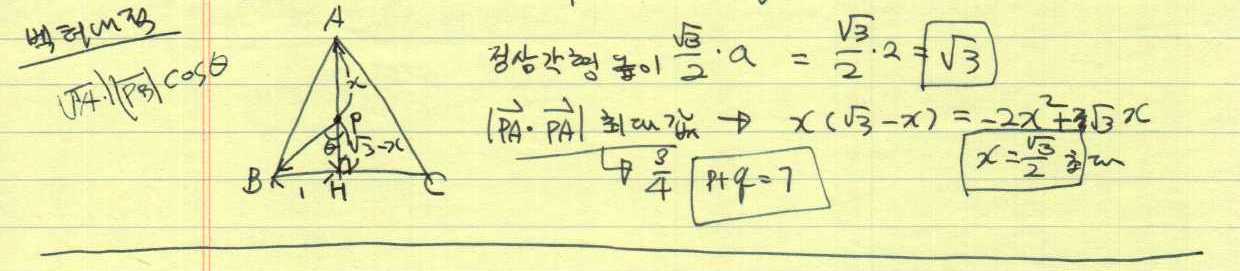 벡터내적
|PA|·|PB| cosθ
A
x
P
θ √3-x
B 1 H C
정삼각형 높이 √3/2 · a = √3/2 · 2 = √3
|PA · PA| 최대값 → x(√3-x) = -2x²+√3x
↳ 3/4 p+q=7 x=√3/2 최대